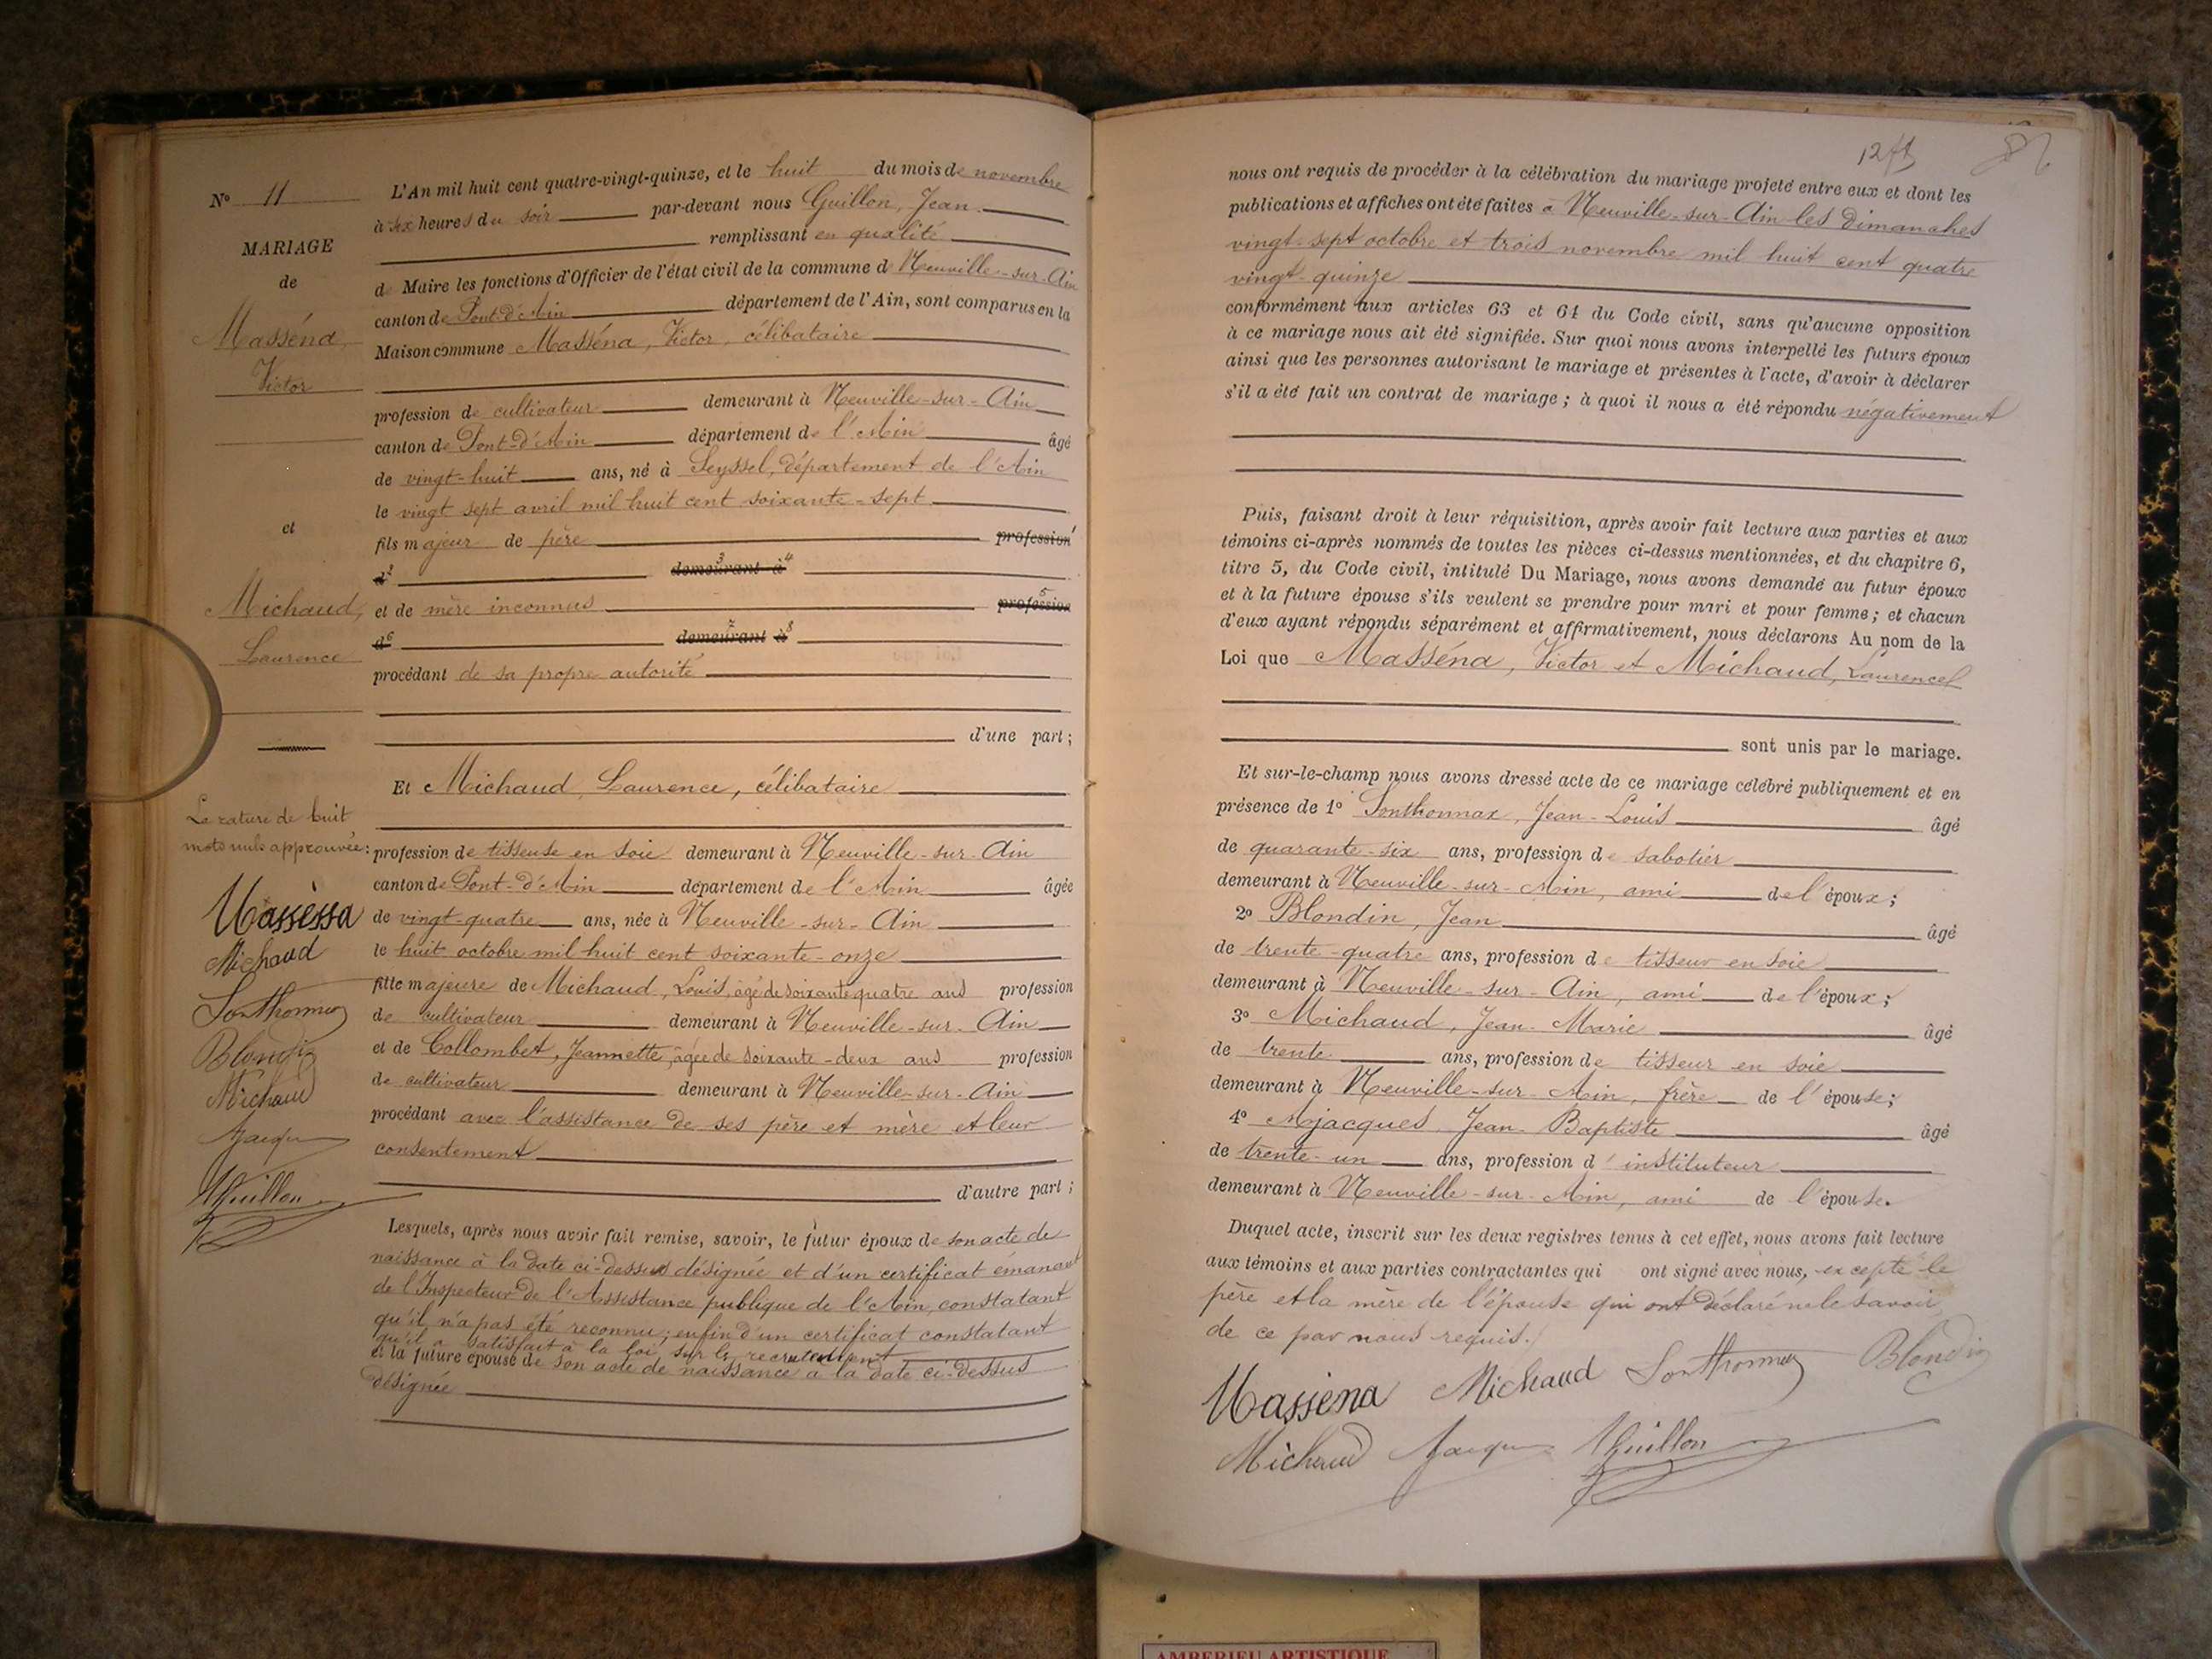 N° 11
MARIAGE
de
Masséna,
Victor
et
Michaud,
Laurence
La rature de huit
mots nuls approuvée:
Massèssa
Michaud
Sonthonnax
Blondin
Michaud
JGuillon
L'An mil huit cent quatre-vingt-quinze, et le huit du mois de novembre
à six heures du soir par-devant nous Guillon, Jean
remplissant en qualité
de Maire les fonctions d'Officier de l'état civil de la commune de Neuville-sur-Ain
canton de Pont-d'Ain département de l'Ain, sont comparus en la
Maison commune Masséna, Victor, célibataire
profession de cultivateur demeurant à Neuville-sur-Ain
canton de Pont-d'Ain département de l'Ain âgé
de vingt-huit ans, né à Seyssel, département de l'Ain
le vingt sept avril mil huit cent soixante-sept
fils majeur de père profession 1
d 2 demeurant 3 à 4
et de mère inconnus profession 5
d 6 demeurant 7 à 8
procédant de sa propre autorité
d'une part;
Et Michaud, Laurence, célibataire
profession de tisseuse en soie demeurant à Neuville-sur-Ain
canton de Pont-d'Ain département de l'Ain âgée
de vingt-quatre ans, née à Neuville-sur-Ain
le huit octobre mil huit cent soixante-onze
fille majeure de Michaud, Louis, âgé de soixante quatre ans profession
de cultivateur demeurant à Neuville-sur-Ain
et de Collombet, Jeannette, âgée de soixante-deux ans profession
de cultivateur demeurant à Neuville-sur-Ain
procédant avec l'assistance de ses père et mère et leur
consentement
d'autre part;
Lesquels, après nous avoir fait remise, savoir, le futur époux de son acte de
naissance à la date ci-dessus désignée et d'un certificat émanant
de l'Inspecteur de l'Assistance publique de l'Ain, constatant
qu'il n'a pas été reconnu; enfin d'un certificat constatant
qu'il a satisfait à la loi sur le recrutement
et la future épouse de son acte de naissance à la date ci-dessus
désignée
nous ont requis de procéder à la célébration du mariage projeté entre eux et dont les
publications et affiches ont été faites à Neuville-sur-Ain les Dimanches
vingt-sept octobre et trois novembre mil huit cent quatre
vingt-quinze
conformément aux articles 63 et 64 du Code civil, sans qu'aucune opposition
à ce mariage nous ait été signifiée. Sur quoi nous avons interpellé les futurs époux
ainsi que les personnes autorisant le mariage et présentes à l'acte, d'avoir à déclarer
s'il a été fait un contrat de mariage; à quoi il nous a été répondu négativement
Puis, faisant droit à leur réquisition, après avoir fait lecture aux parties et aux
témoins ci-après nommés de toutes les pièces ci-dessus mentionnées, et du chapitre 6,
titre 5, du Code civil, intitulé Du Mariage, nous avons demandé au futur époux
et à la future épouse s'ils veulent se prendre pour mari et pour femme; et chacun
d'eux ayant répondu séparément et affirmativement, nous déclarons Au nom de la
Loi que Masséna, Victor et Michaud, Laurence
sont unis par le mariage.
Et sur-le-champ nous avons dressé acte de ce mariage célébré publiquement et en
présence de 1° Sonthonnax, Jean-Louis âgé
de quarante-six ans, profession de sabotier
demeurant à Neuville-sur-Ain, ami de l'époux;
2° Blondin, Jean âgé
de trente-quatre ans, profession de tisseur en soie
demeurant à Neuville-sur-Ain, ami de l'époux;
3° Michaud, Jean-Marie âgé
de trente ans, profession de tisseur en soie
demeurant à Neuville-sur-Ain, frère de l'épouse;
4° Jacques, Jean-Baptiste âgé
de trente-un ans, profession d'instituteur
demeurant à Neuville-sur-Ain, ami de l'épouse.
Duquel acte, inscrit sur les deux registres tenus à cet effet, nous avons fait lecture
aux témoins et aux parties contractantes qui ont signé avec nous, excepté le
père et la mère de l'épouse qui ont déclaré ne le savoir
de ce par nous requis.
Massena Michaud Sonthonnax Blondin
Michaud Jacques JGuillon
AMBERIEU ARTISTIQUE